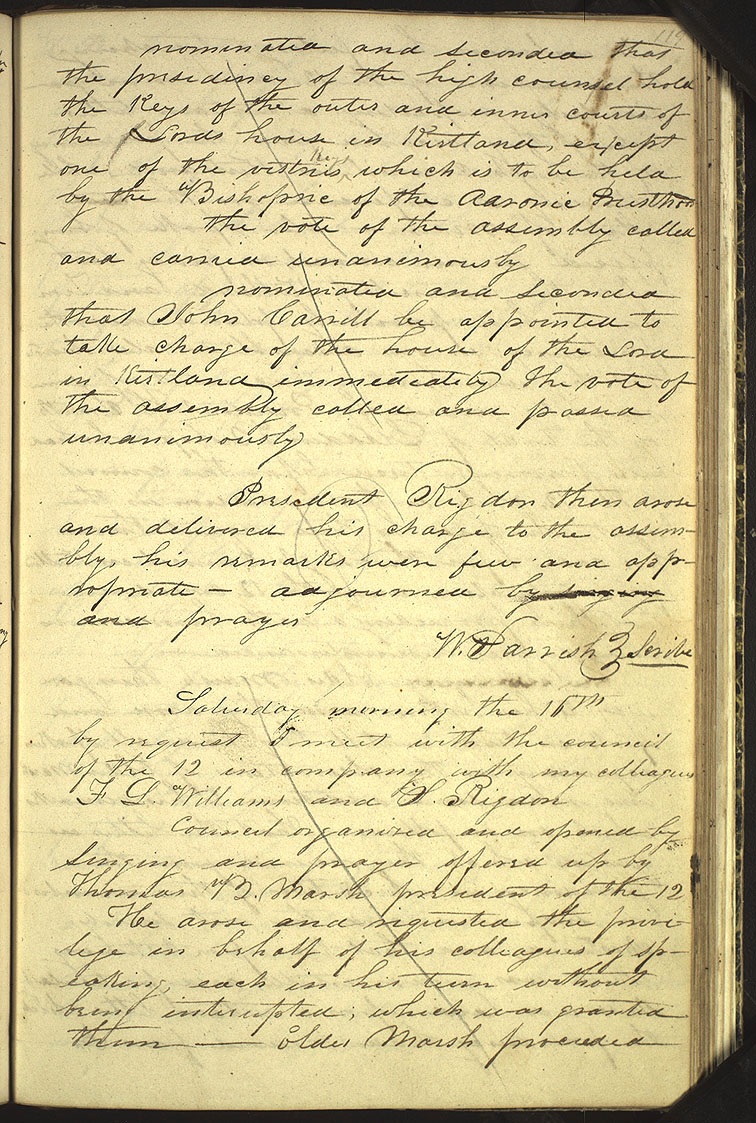 119
nominated and seconded that
the presidincy of the high counsel hold
the Keys of the outer and inner courts of
the Lords house in Kirtland, except
one of the vestries keys which is to be held
by the Bishopric of the Aaronic Priesthood
the vote of the assembly called
and carried unanimously
nominated and seconded
that John Carrill be appointed to
take charge of the house of the Lord
in Kirtland immediately the vote of
the assembly called and passed
unanimously
President Rigdon then arose
and delivered his charge to the assem-
bly, his remarks were few and app-
ropriate — adjourned by singing
and prayer
W. Parrish Scribe
Saturday morning the 16th
by request I meet with the council
of the 12 in company with my colleagues
F G Williams and S. Rigdon
Council organized and opened by
singing and prayer offered up by
Thomas B. Marsh president of the 12
He arose and requested the privi-
lege in behalf of his colleagues of sp-
eaking, each in his turn without
being interupted; which was granted
them — elder Marsh proceeded